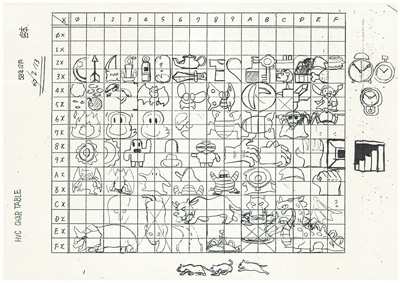 X φ 1 2 3 4 5 6 7 8 9 A B C D E F
φX
1X
2X
3X
4X
5X
6X
7X
8X
9X
AX
BX
CX
DX
EX
FX
HVC CHAR TABLE